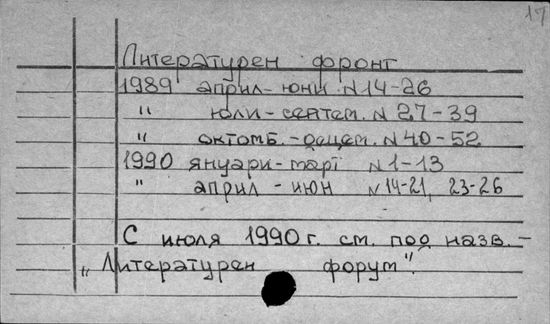 17
Литературен фронт
1989 април-юни N 14-26
" юли-септем. N 27-39
" октомб.-децем. N 40-52
1990 януари-март N 1-13
" април - июн N 14-21, 23-26
С июля 1990 г. см. под назв. -
„Литературен форум".